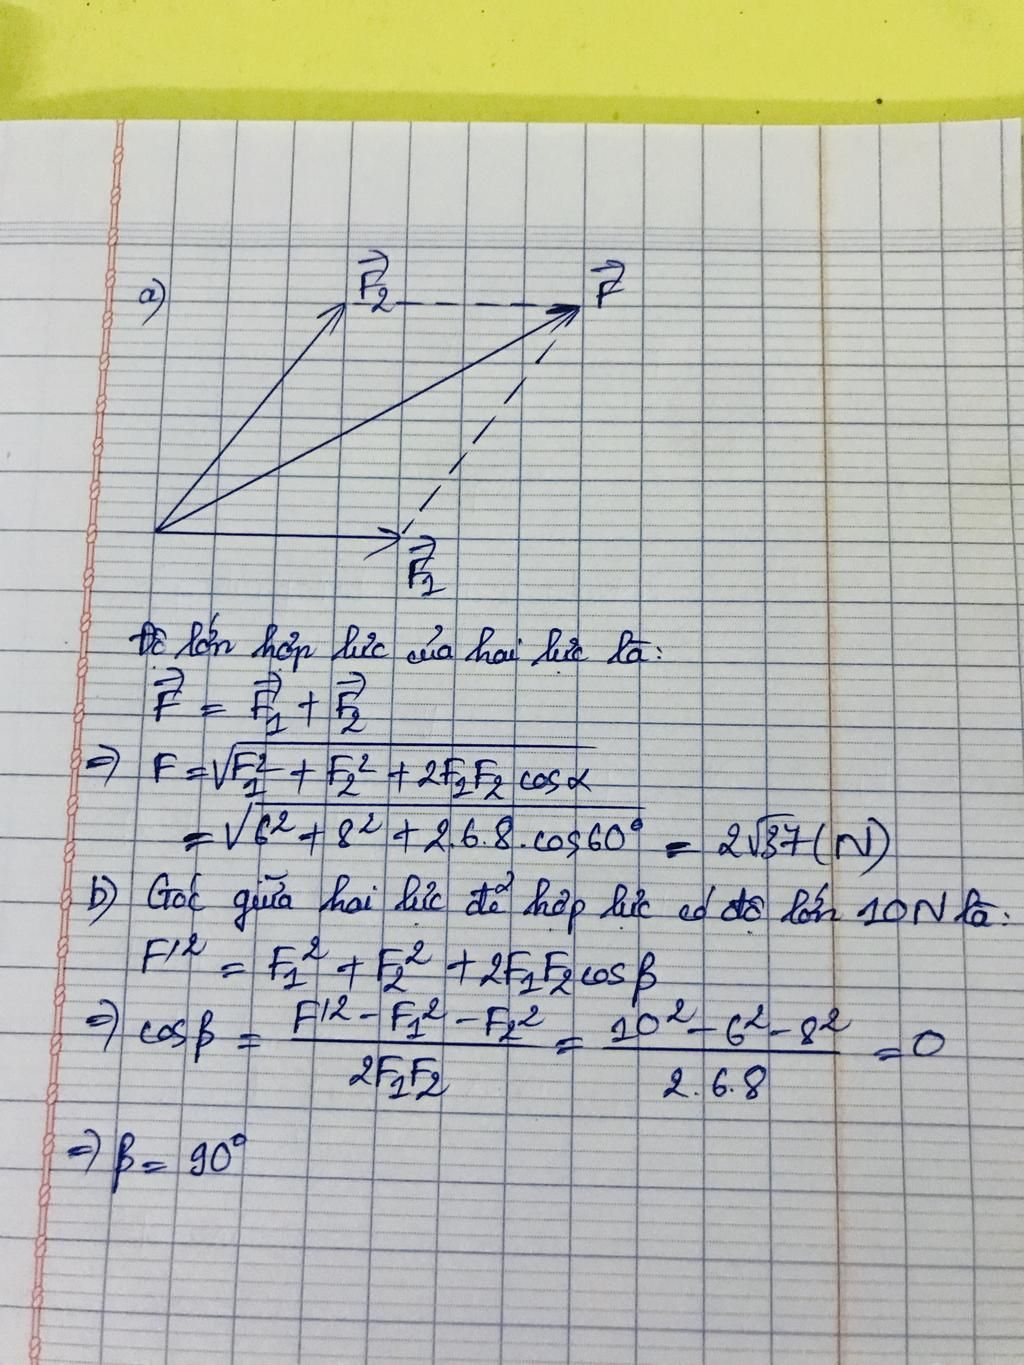 a)
F⃗₂
F⃗
F⃗₁
Độ lớn hợp lực của hai lực là:
F⃗ = F⃗₁ + F⃗₂
=> F = √(F₁² + F₂² + 2F₁F₂ cosα)
= √(6² + 8² + 2.6.8.cos60°) = 2√37 (N)
b) Góc giữa hai lực để hợp lực có độ lớn 10N là:
F'² = F₁² + F₂² + 2F₁F₂cosβ
=> cosβ = (F'² - F₁² - F₂²)/(2F₁F₂) = (10² - 6² - 8²)/(2.6.8) = 0
=> β = 90°